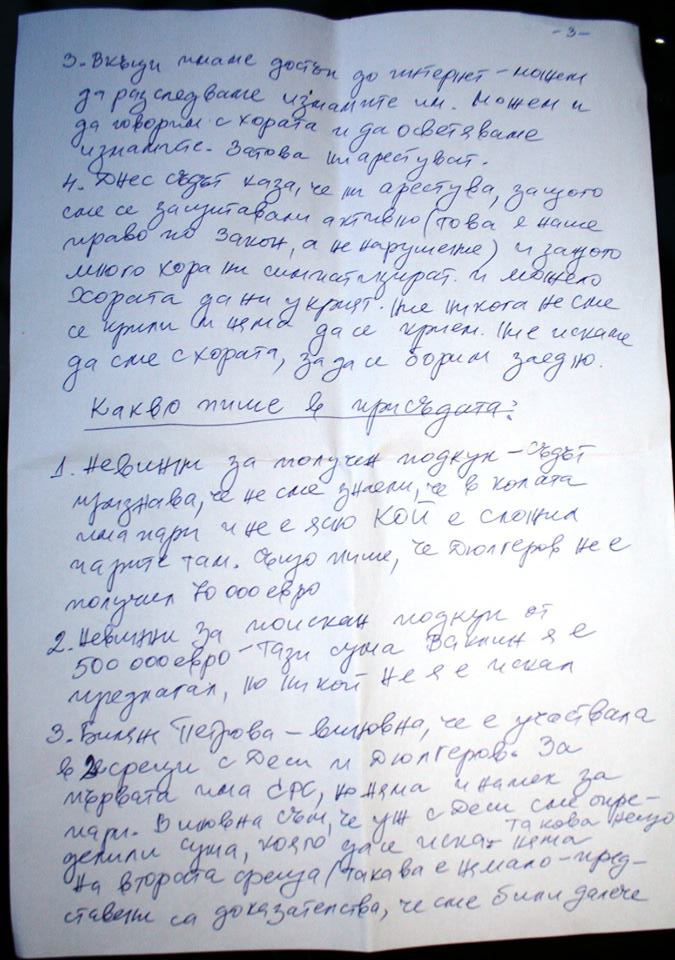 -3-
3. Вкъщи имаме достъп до интернет - можем
да разследваме измамите им. Можем и
да говорим с хората и да осветяваме
измамите. Затова ни арестуват.
4. Днес съдът каза, че ни арестува, защото
сме се защитавали активно (това е наше
право по закон, а не нарушение) и защото
много хора ни симпатизират. и можело
хората да ни укрият. Ние никога не сме
се крили и няма да се крием. Ние искаме
да сме с хората, за да се борим заедно.
Какво пише в присъдата?
1. Невинни за получен подкуп - съдът
признава, че не сме знаели, че в колата
има пари и не е ясно КОЙ е сложил
парите там. Също пише, че Дюлгеров не е
получил 70 000 евро
2. Невинни за поискан подкуп от
500 000 евро - Тази сума Ваклин я е
предлагал, но никой не я е искал
3. Биляна Петрова - виновна, че е участвала
в 2 срещи с Деси и Дюлгеров. За
първата има СРС, но няма и намек за
пари. Виновна съм, че уж с Деси сме опре-
делили сума, която да се иска. няма такова нещо
На втората среща (такава е нямало - пред-
ставени са доказателства, че сме били далече